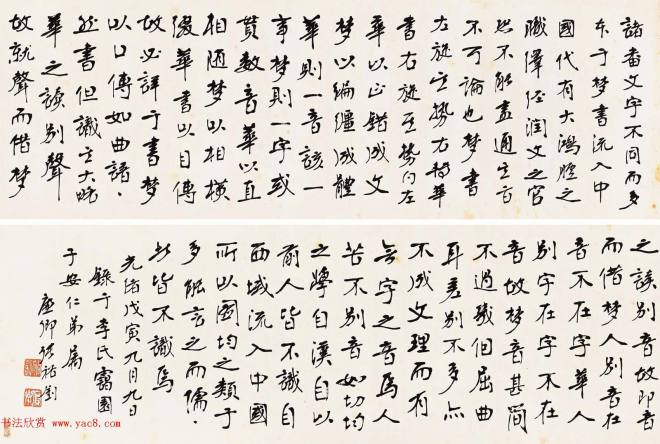 諸番文字不同而多
本于梵書流入中
國代有大鴻臚之
職譯經潤文之官
恐不能盡通其旨
不可論也梵書
左旋其勢向右華
書右旋其勢向左
華以正錯成文
梵以編纏成體
華則一音該一
事梵則一字或
貫數音華以直
相随梵以相橫
綴華書以目傳
故必詳于書梵
以口傳如曲譜
然書但識其大略
華之讀別聲
故就聲而借梵
之讀別音故即音
而借梵人別音在
音不在字華人
別字在字不在
音故梵音甚簡
不過數個屈曲
耳差別不多亦
不成文理而有
無字之音焉人
苦不別音如切均
之學自漢以
前人皆不識自
西域流入中國
所以圖均之類于
多能言之而儒
皆不識焉
光緒戊寅九月九日
錄于李氏靄園
仁弟屬
廉卿張裕釗
书法欣赏
www.yac8.com